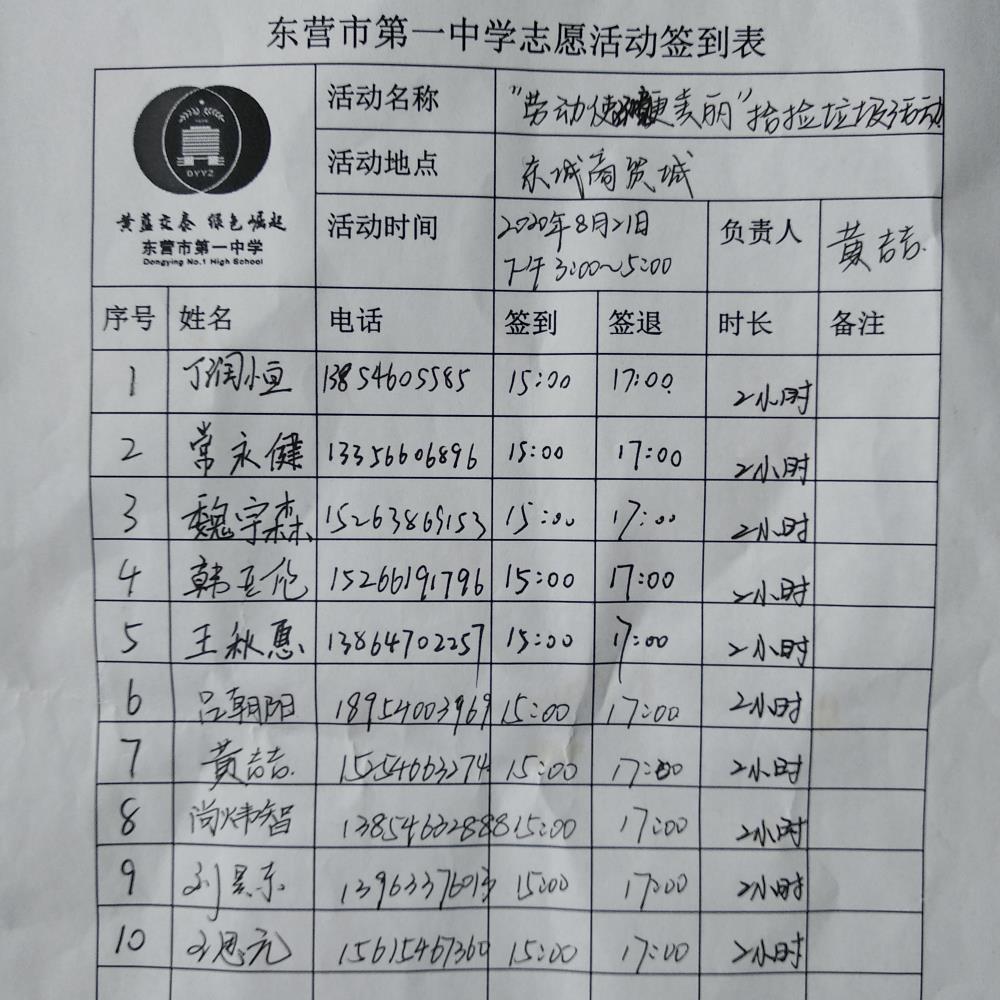 东营市第一中学志愿活动签到表
活动名称 "劳动使更美丽"拾捡垃圾活动
DYYZ
活动地点 东城商贸城
黄蓝交泰 绿色崛起
东营市第一中学
Dongying No.1 High School
活动时间 2020年8月21日 负责人 黄吉吉
下午3:00~5:00
序号 姓名 电话 签到 签退 时长 备注
1 丁润恒 13854605585 15:00 17:00 2小时
2 常永健 13356606896 15:00 17:00 2小时
3 魏宇森 15263869153 15:00 17:00 2小时
4 韩亚伦 15266191796 15:00 17:00 2小时
5 王秋惠 13864702257 15:00 17:00 2小时
6 吕朝阳 18954003969 15:00 17:00 2小时
7 黄吉吉 15254663274 15:00 17:00 2小时
8 尚炜智 13854632888 15:00 17:00 2小时
9 刘昊东 15:00 17:00 2小时
10 思元 15615467360 15:00 17:00 2小时